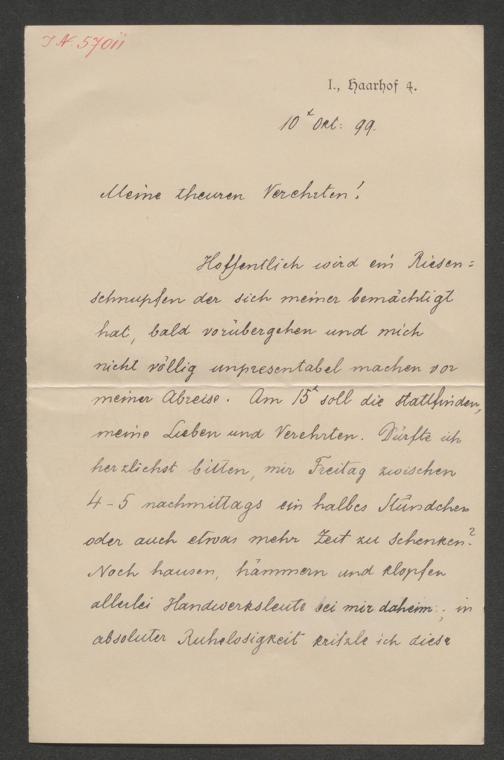 I. N. 57011
I., Haarhof 4.
10t Okt: 99.
Meine theuren Verehrten!
Hoffentlich wird ein Riesen=
schnupfen der sich meiner bemächtigt
hat, bald vorübergehen und mich
nicht völlig unpresentabel machen vor
meiner Abreise. Am 15t soll die stattfinden,
meine Lieben und Verehrten. Dürfte ich
herzlichst bitten, mir Freitag zwischen
4-5 nachmittags ein halbes Stündchen
oder auch etwas mehr Zeit zu schenken?
Noch hausen, hämmern und klopfen
allerlei Handwerksleute bei mir daheim; in
absoluter Ruhelosigkeit kritzle ich diese